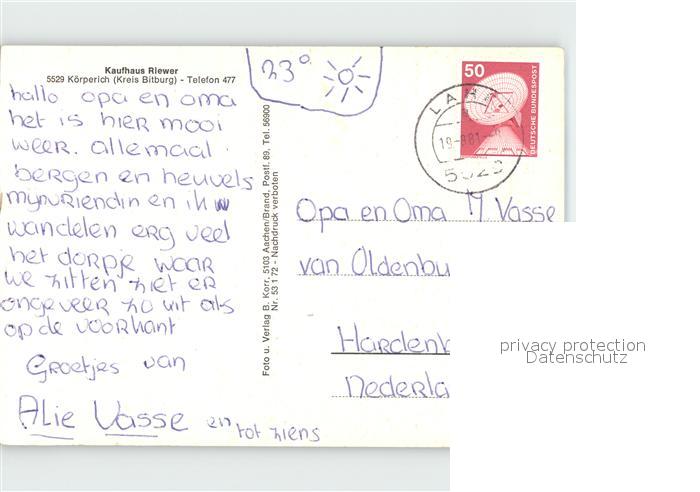 Kaufhaus Riewer
5529 Körperich (Kreis Bitburg) - Telefon 477
33°
hallo opa en oma
het is hier mooi
weer. allemaal
bergen en heuvels
mijnvriendin en ik
wandelen erg veel
het dorpje waar
we zitten ziet er
ongeveer zo uit als
op de voorkant
Groetjes van
Alie Vasse en
tot ziens
Foto u. Verlag B. Korr, 5103 Aachen/Brand, Postf. 89, Tel. 56900
Nr. 53 1 72 - Nachdruck verboten
50
DEUTSCHE BUNDESPOST
Opa en Oma M Vasse
van Oldenbu
Hardenb
Nederla
privacy protection
Datenschutz